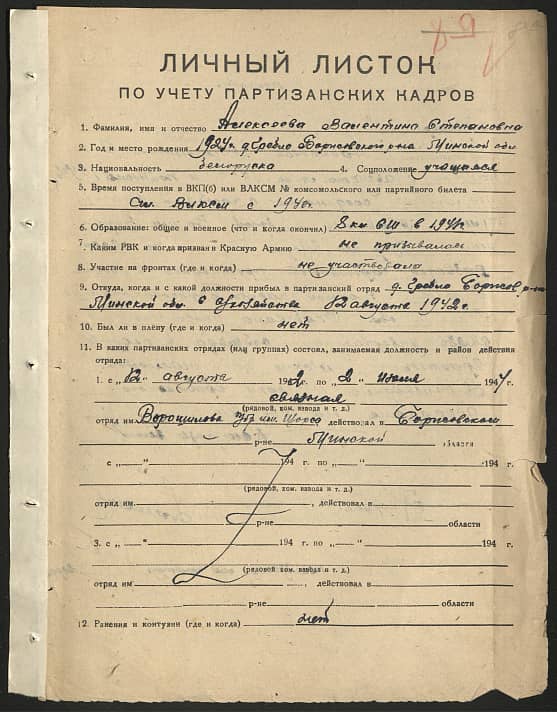 ЛИЧНЫЙ ЛИСТОК
ПО УЧЕТУ ПАРТИЗАНСКИХ КАДРОВ
1. Фамилия, имя и отчество Алексеева Валентина Степановна
2. Год и место рождения 1924г. д. Гребло Борисовского р-на Минской обл.
3. Национальность белоруска 4. Соцположение учащаяся
5. Время поступления в ВКП(б) или ВЛКСМ № комсомольского или партийного билета
чл. ВЛКСМ с 1940г.
6. Образование: общее и военное (что и когда окончил) 8 кл СШ в 1941г.
7. Каким РВК и когда призван в Красную Армию не призывалась
8. Участие на фронтах (где и когда) не участвовала
9. Откуда, когда и с какой должности прибыл в партизанский отряд д. Гребло Борисов. р-на
Минской обл. с д/хозяйства 12 августа 1942г.
10. Был ли в плену (где и когда) нет
11. В каких партизанских отрядах (или группах) состоял, занимаемая должность и район действия
отряда:
1. с „12“ августа 1942 г. по „2“ июля 1944 г.
связная
(рядовой, ком. взвода и т. д.)
отряд им. Ворошилова бр. им. Щорса действовал в Борисовском
р-не Минской области
с „ — “ 194 г. по „ — “ 194 г.
(рядовой, ком. взвода и т. д.)
отряд им. , действовал в
р-не области
3. с „ — “ 194 г. по „ — “ 194 г.
(рядовой, ком. взвода и т. д.)
отряд им , действовал в
р-не области
12. Ранения и контузии (где и когда) нет